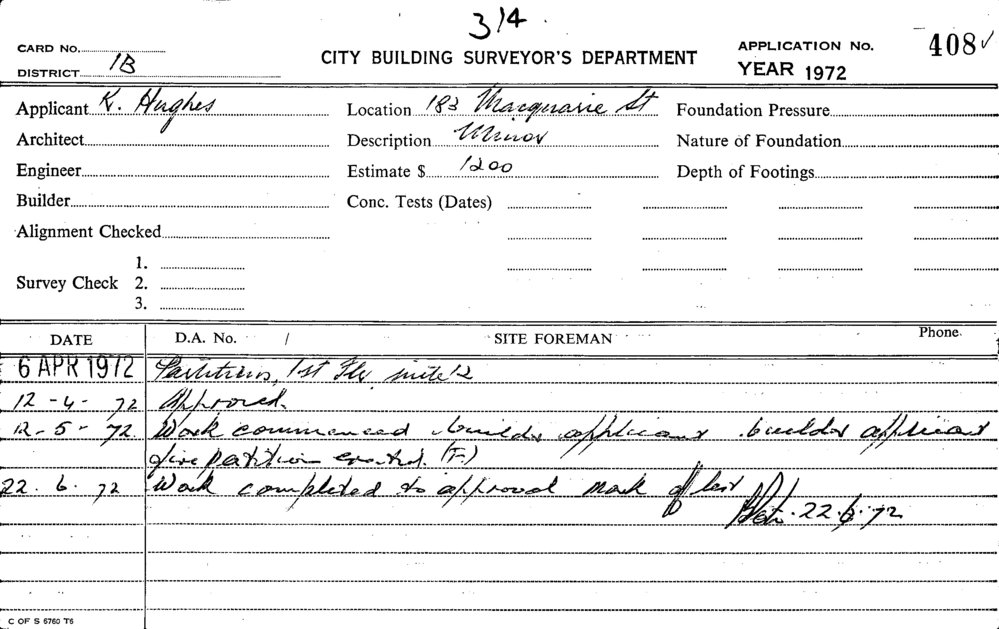 314
CARD No.
CITY BUILDING SURVEYOR'S DEPARTMENT
APPLICATION No. 408 ✓
DISTRICT 1B
YEAR 1972
Applicant K. Hughes
Location 183 Macquarie St
Foundation Pressure
Architect
Description Minor
Nature of Foundation
Engineer
Estimate $ 1200
Depth of Footings
Builder
Conc. Tests (Dates)
Alignment Checked
Survey Check 1.
2.
3.
DATE D.A. No. / SITE FOREMAN Phone
6 APR 1972 Partitions, 1st Flr, suite 12
12-4-72 Approved.
12-5-72. Work commenced builder applicant builder applicant
partition erected. (F)
22.6.72 Work completed to approval
22.6.72
C OF S 6760 T6